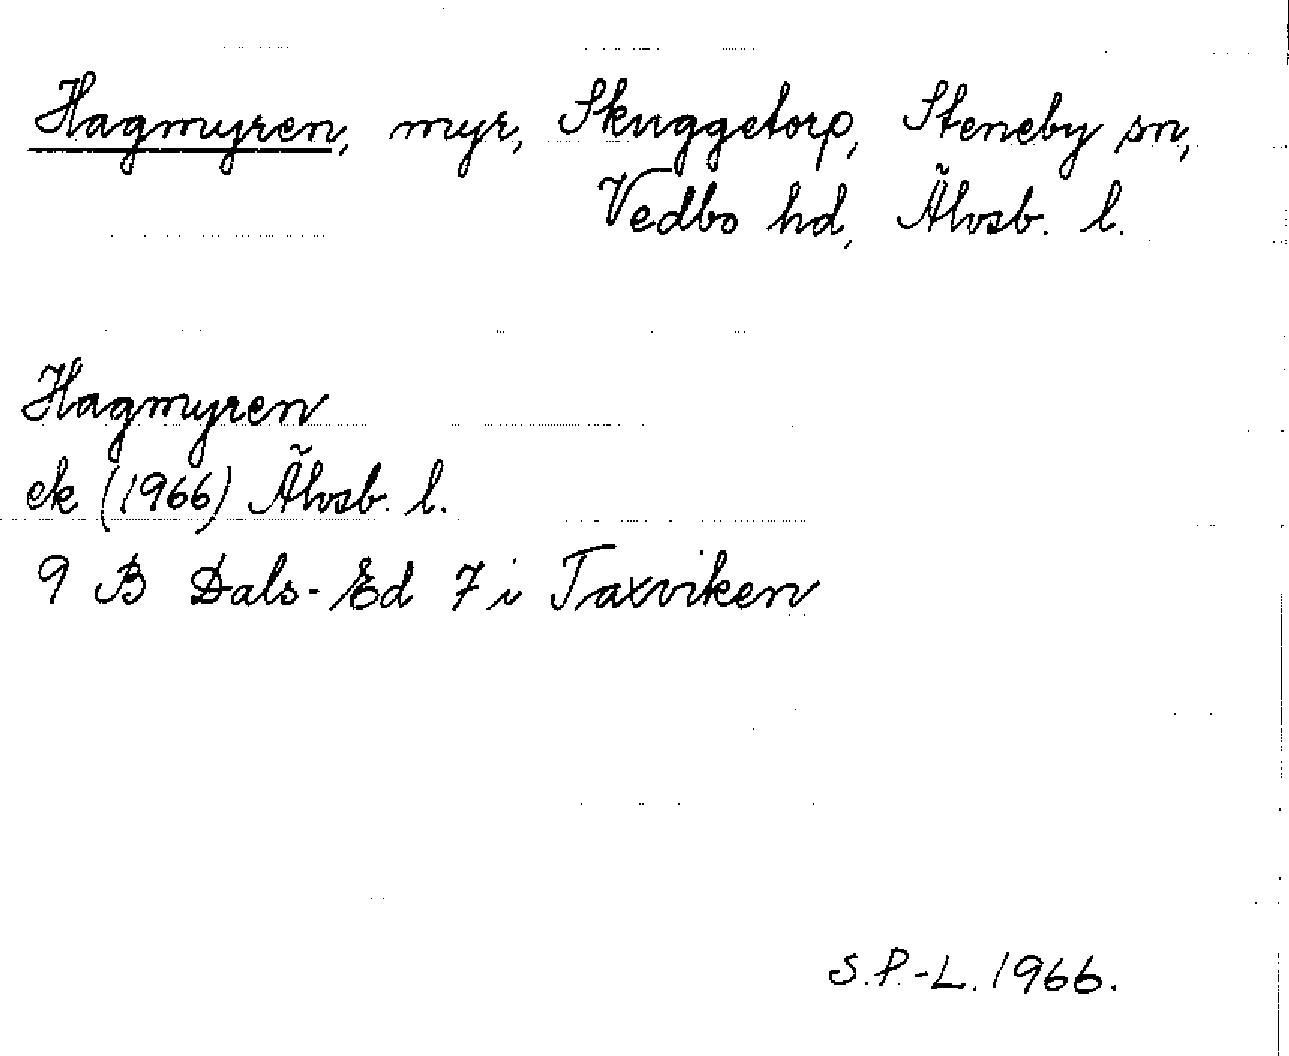 Hagmyren, myr, Skuggetorp, Steneby sn,
Vedbo hd, Älvsb. l.
Hagmyren
ek (1966) Älvsb. l.
9 B Dals-Ed 7 i Taxviken
S.P.-L. 1966.